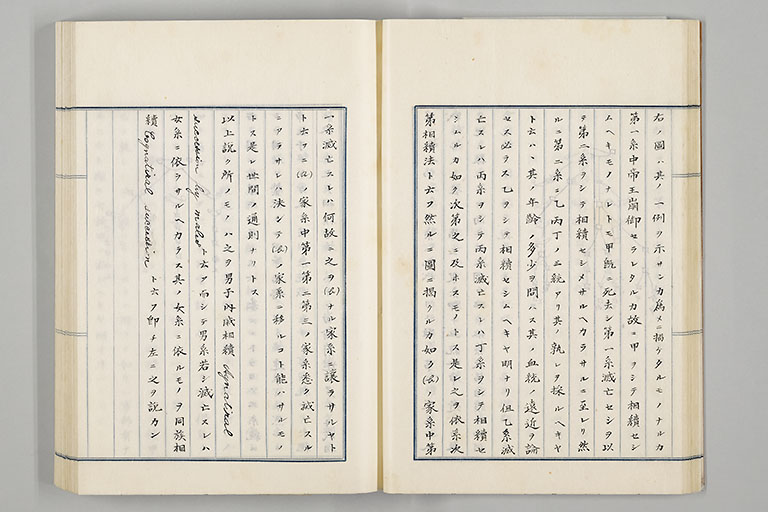 右ノ圖ハ其ノ一例ヲ示サンカ爲メニ揭ケタルモノナルカ
第一系中帝王崩御セラレタルカ故ニ甲ヲシテ相續セシ
ムヘキモノナレトモ甲既ニ死去シ第一系滅亡セシヲ以
テ第二系ヲシテ相續セシメサルヘカラサルニ至レリ然
ルニ第二系ニ乙丙丁ノ三統アリ其ノ孰レヲ採ルヘキヤ
ト云ハヽ其ノ年齡ノ多少ヲ問ハス其ノ血統ノ遠近ヲ論
セス必ラス乙ヲシテ相續セシムヘキヤ明ナリ但乙系滅
亡スレハ丙系ヲシテ丙系滅亡スレハ丁系ヲシテ相續セ
シムルカ如ク次第之ニ及ホスモノトス是レ之ヲ依系次
第相續法ト云フ然ルニ圖ニ揭クルカ如ク ノ家系中第
一系滅亡スレハ何故ニ之ヲ ナル家系ニ讓ラサルヤト
ト云フニ ノ家系中第一第二第三ノ家系悉ク滅亡スル
ニアラサレハ決シテ ノ家系ニ移ルコト能ハサルモノ
トス是レ世間ノ通則ナリトス
以上說ク所ノモノハ之ヲ男子內戚相續 Agnatical
succession by males ト云フ而シテ男系若シ滅亡スレハ
女系ニ依ラサルヘカラス其ノ女系ニ依ルモノヲ同族相
續 Cognatical succession ト云フ卽チ左ニ之ヲ說カン